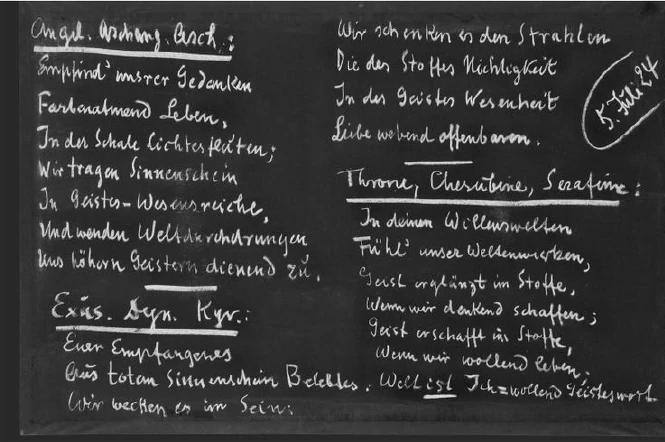 Angel. Archang. Arch.:
Empfind' unsrer Gedanken
Farbenatmend Leben,
In der Schale Lichtesfluten;
Wir tragen Sinnenschein
In Geistes-Wesensreiche,
Und wenden Weltdurchdrungen
Uns höhern Geistern dienend zu.
Exus. Dyn. Kyr.:
Euer Empfangenes
Aus totem Sinnenschein Belebtes.
Wir wecken es im Sein:
Wir schenken es den Strahlen
Die des Stoffes Nichtigkeit
In des Geistes Wesenheit
Liebe webend offenbaren.
5. Juli 24
Throne, Cherubine, Serafime:
In deinen Willenswelten
Fühl' unser Weltenwirken,
Geist erglänzt im Stoffe,
Wenn wir denkend schaffen;
Geist erschafft im Stoffe,
Wenn wir wollend leben:
Welt ist Ich=wollend Geisteswort